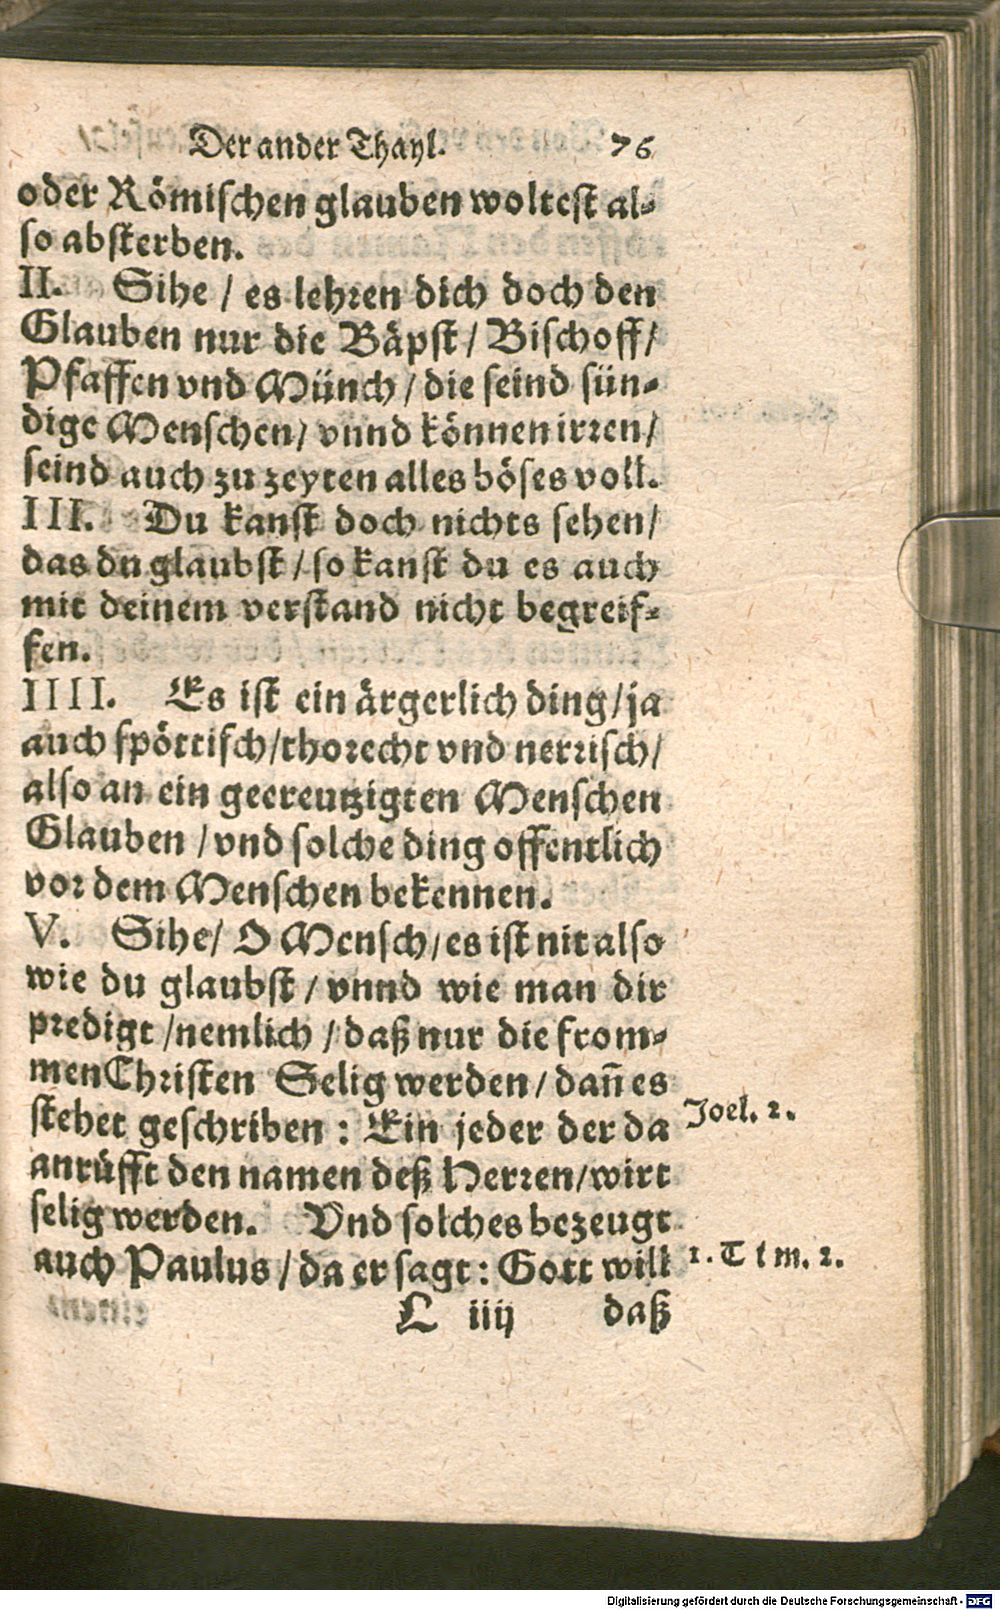 Der ander Thayl. 76
oder Römischen glauben woltest al-
so absterben.
II. Sihe / es lehren dich doch den
Glauben nur die Bäpst / Bischoff /
Pfaffen vnd Münch / die seind sün-
dige Menschen / vnnd können irren /
seind auch zu zeyten alles böses voll.
III. Du kanst doch nichts sehen /
das du glaubst / so kanst du es auch
mit deinem verstand nicht begreif-
fen.
IIII. Es ist ein ärgerlich ding / ja
auch spöttisch / thorecht vnd nerrisch /
also an ein gecreutzigten Menschen
Glauben / vnd solche ding offentlich
vor dem Menschen bekennen.
V. Sihe / O Mensch / es ist nit also
wie du glaubst / vnnd wie man dir
predigt / nemlich / daß nur die from-
men Christen Selig werden / dañ es
stehet geschriben : Ein jeder der da
Joel. 2.
anrüfft den namen deß Herren / wirt
selig werden. Vnd solches bezeugt
auch Paulus / da er sagt : Gott will
1. Tim. 2.
L iiij daß
Digitalisierung gefördert durch die Deutsche Forschungsgemeinschaft - DFG